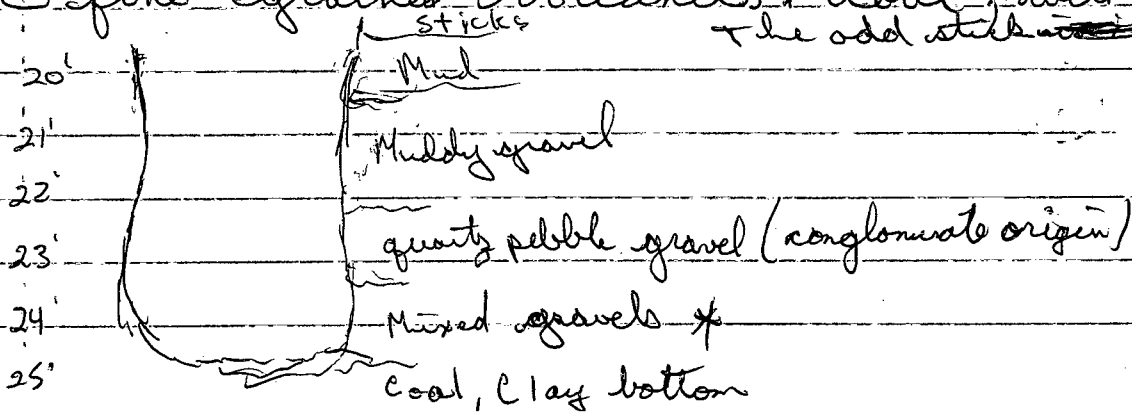 fine grained
sticks
The odd stick
20' Mud
21' Muddy gravel
22'
quartz pebble gravel (conglomerate origin)
23'
24' Mixed gravels *
25' Coal, Clay bottom